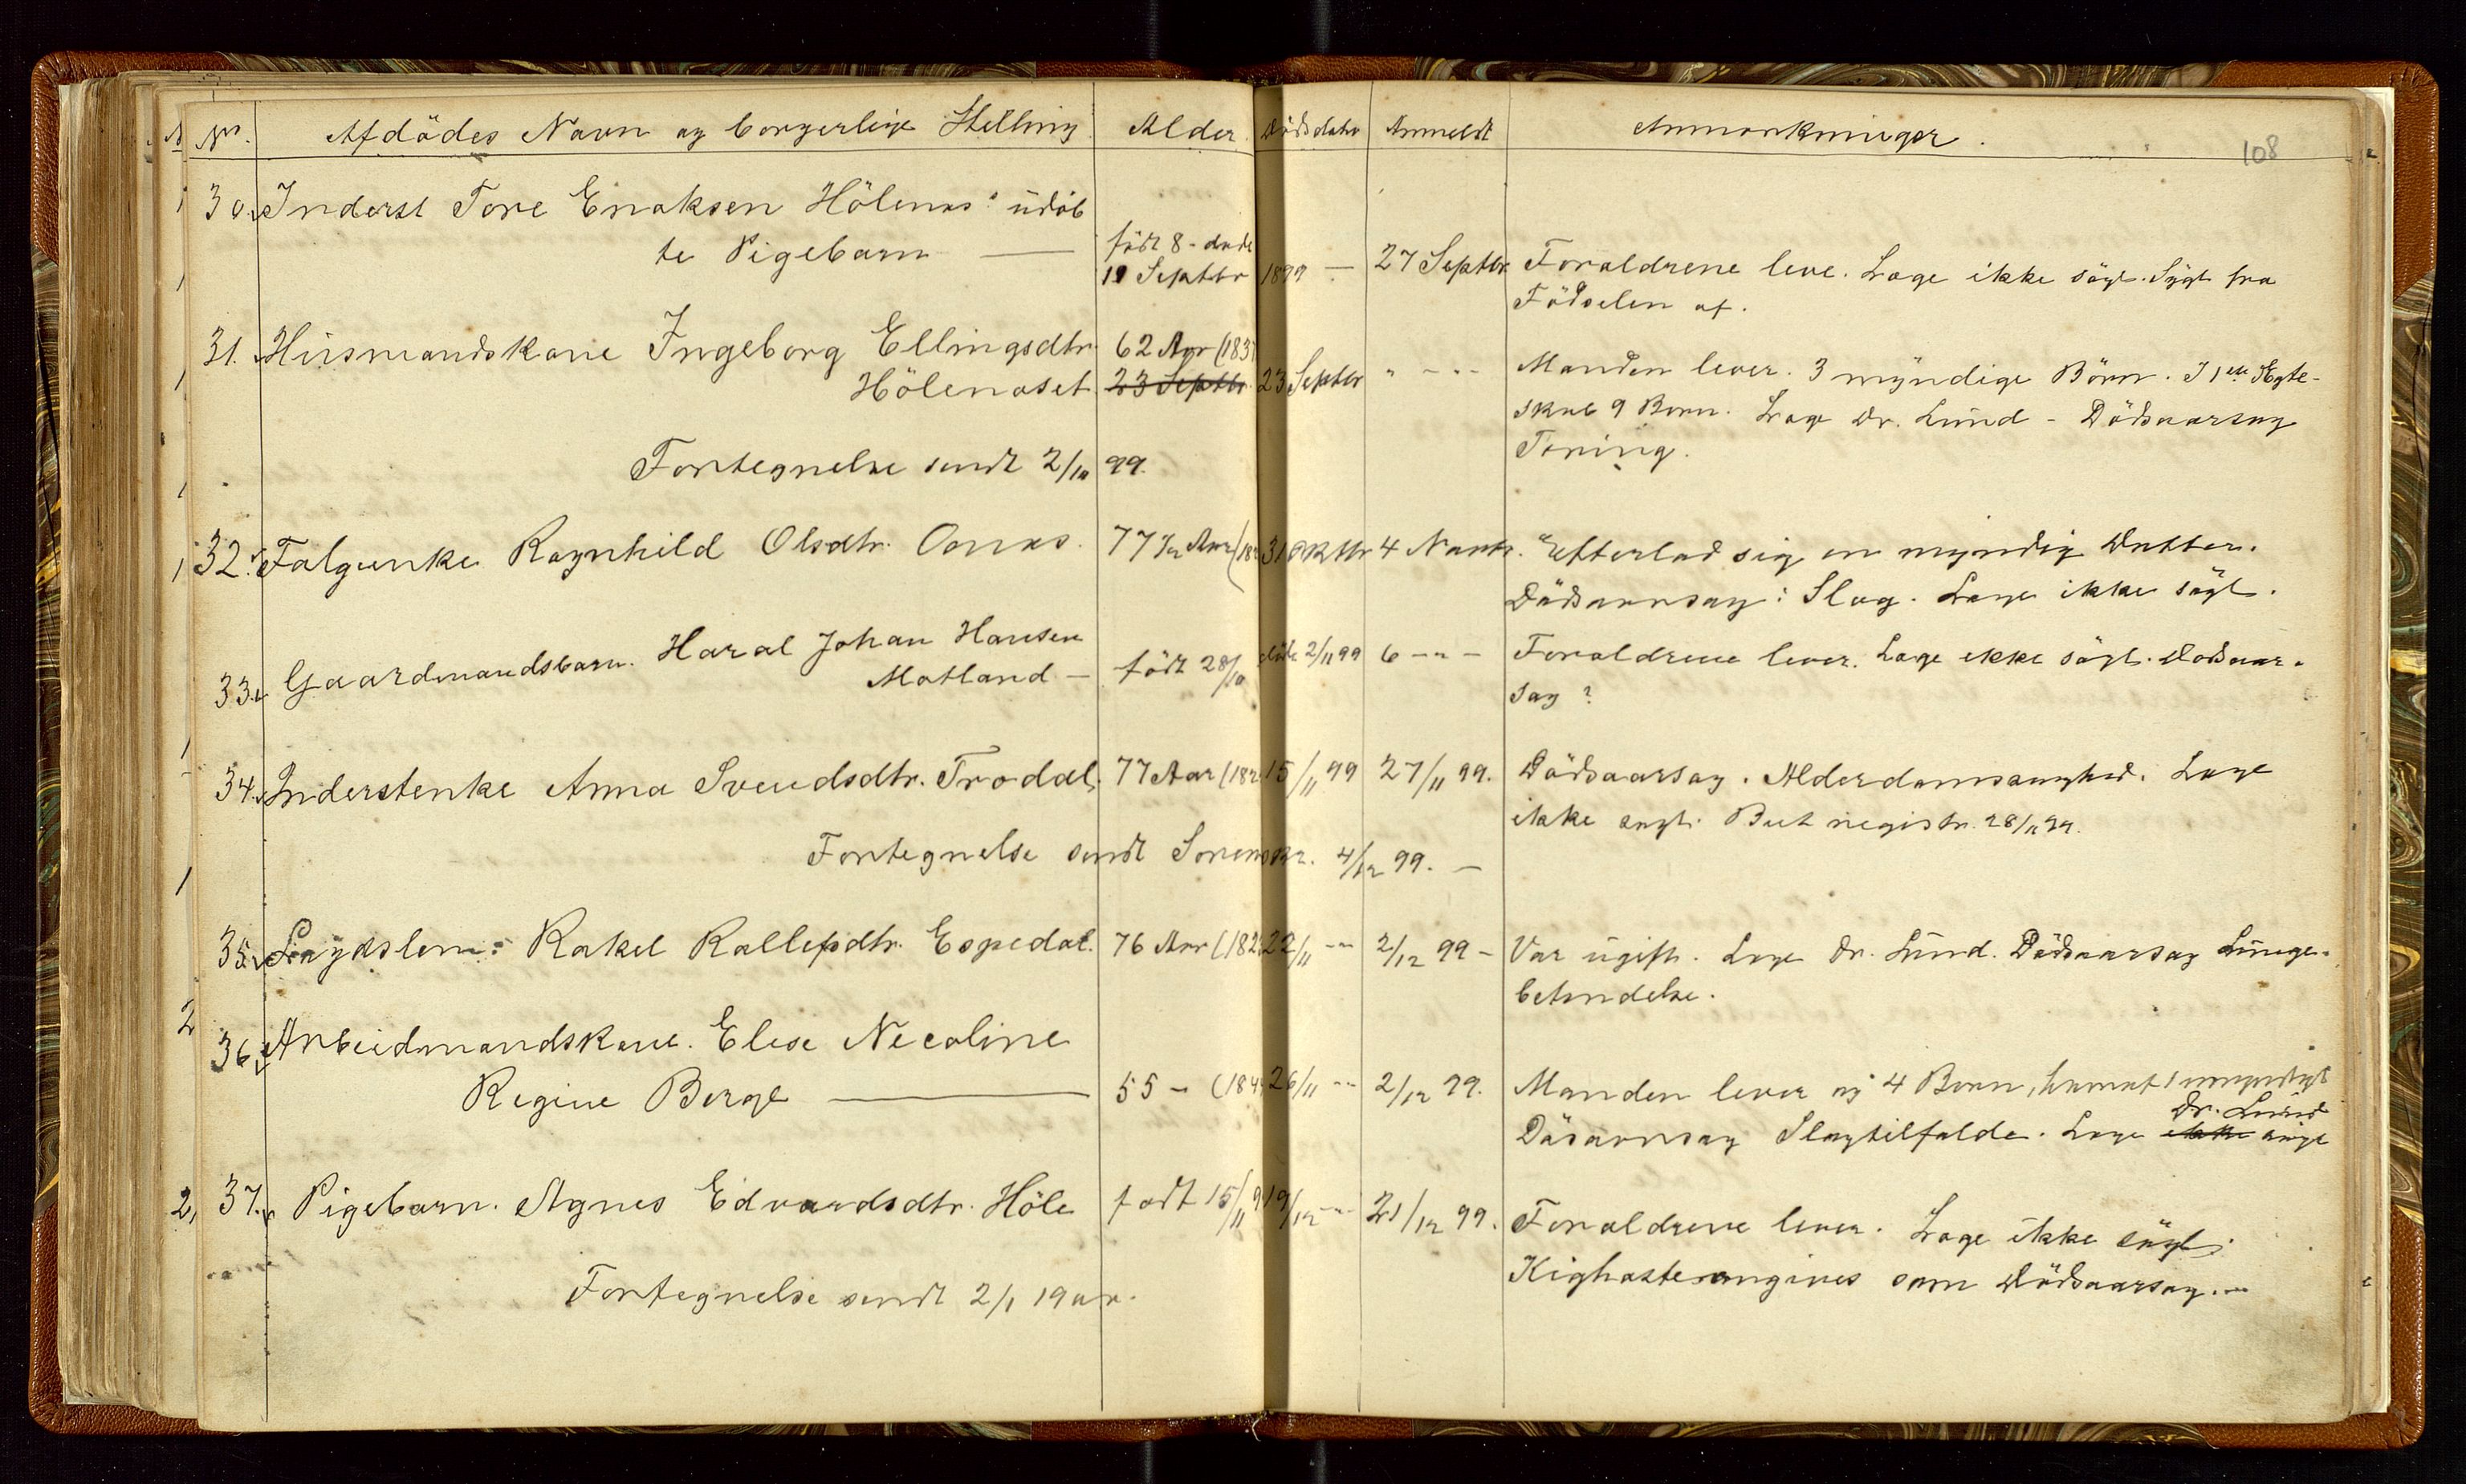 No. Afdödes Navn og borgerlige Stilling Alder Dödsdato Anmeldt Anmærkninger. 108
30. Inderst Tore Enoksen Hölenæs' udöb
te Pigebarn — födt 8 - døde
19 Septbr 1899 — 27 Septbr Foraldrene leve. Læge ikke sögt. Sygt fra
Födselen af.
31. Husmandskone Ingeborg Ellingsdtr. 62 Aar (1837
Hölenæset 23 Septbr 23 Septbr " - " - Manden lever. 3 myndige Börn. I 1ste Ægte-
skab 9 Börn. Læge Dr. Lund - Dödsaarsag
Tæring.
Fortegnelse sendt 2/10 99.
32. Falgenke Ragnhild Olsdtr. Oanæs. 77 1/2 Aar (182 31 Oktbr 4 Novbr. Efterlod sig en myndig Datter.
Dödsaarsag: Slag. Læge ikke sögt.
33. Gaardmandsbarn. Haral Johan Hansen
Motland — födt 28/10 döde 2/11 99 6 - " - Foraldrene lever. Læge ikke sögt. Dödsaar-
sag?
34. Inderstenke Anna Svendsdtr. Trodal. 77 Aar (182 15/11 99 27/11 99. Dödsaarsag. Alderdomssvaghed. Læge
ikke sögt. But registr. 28/11 99.
Fortegnelse sendt Sorenskr. 4/12 99. —
35. Lægdslem: Rakel Rallefsdtr. Espedal. 76 Aar (182 22/11 - " 2/12 99 - Var ugift. Læge Dr. Lund. Dödsaarsag Lunge-
betændelse.
36. Arbeidmandskone. Elise Necoline
Regine Berge — 55 - (184 26/11 - " 2/12 99. Manden lever og 4 Börn, hvoraf 1 umyndigt
Dr. Lund
Dösaarsag Slagtilfælde. Læge ikke sögt
37. Pigebarn. Agnes Edvardsdtr. Höle födt 15/11 9 19/12 - " 21/12 99. Foraldrene lever. Læge ikke sögt.
Kighoste angives som Dödsaarsag. —
Fortegnelse sendt 2/1 1900.